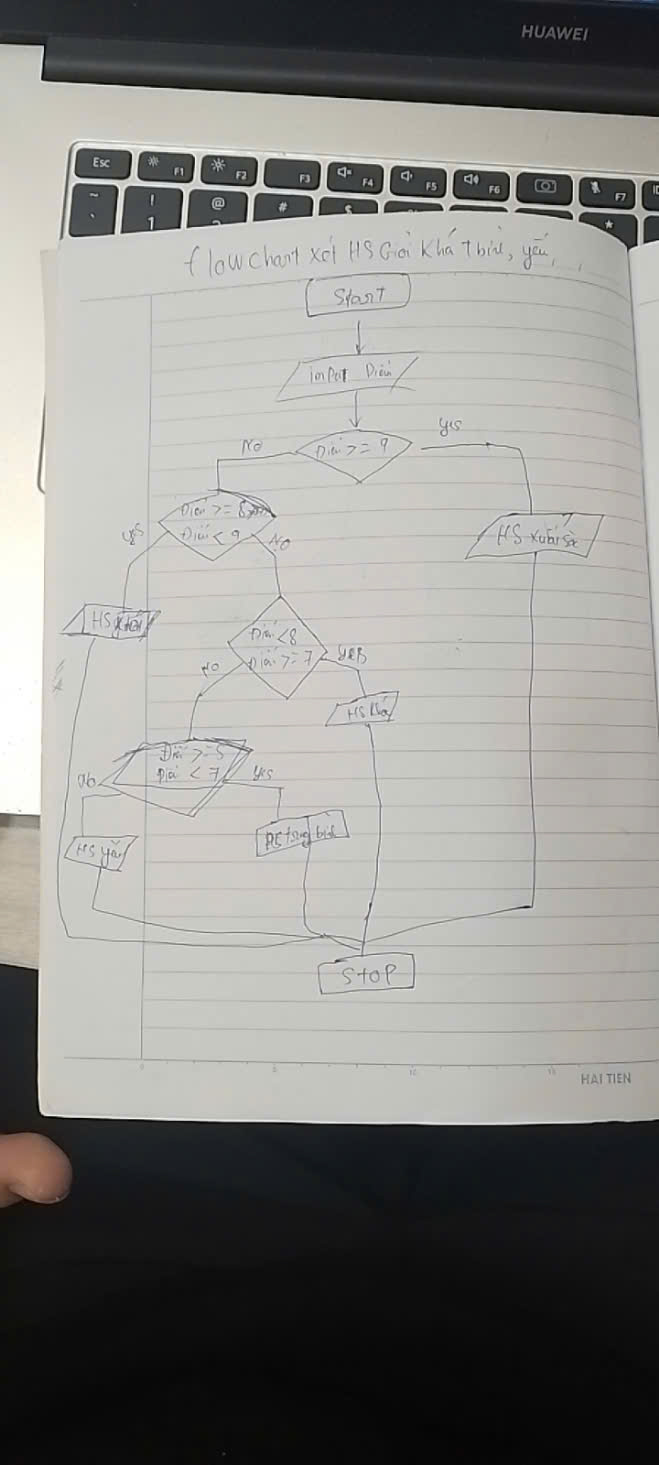 HUAWEI
Esc F1 F2 F3 F4 F5 F6 F7
~ ! @ # $ *
` 1 2
flowchart xét HS Giỏi Khá Tbình, yếu,
Start
input Điểm
Điểm >= 9
No
yes
Điểm >= 8
Điểm < 9
yes
No
HS xuất sắc
HS
Điểm < 8
Điểm >= 7
No
yes
HS khá
Điểm >= 5
Điểm < 7
No
yes
HS yếu
HS trung bình
STOP
HAI TIEN